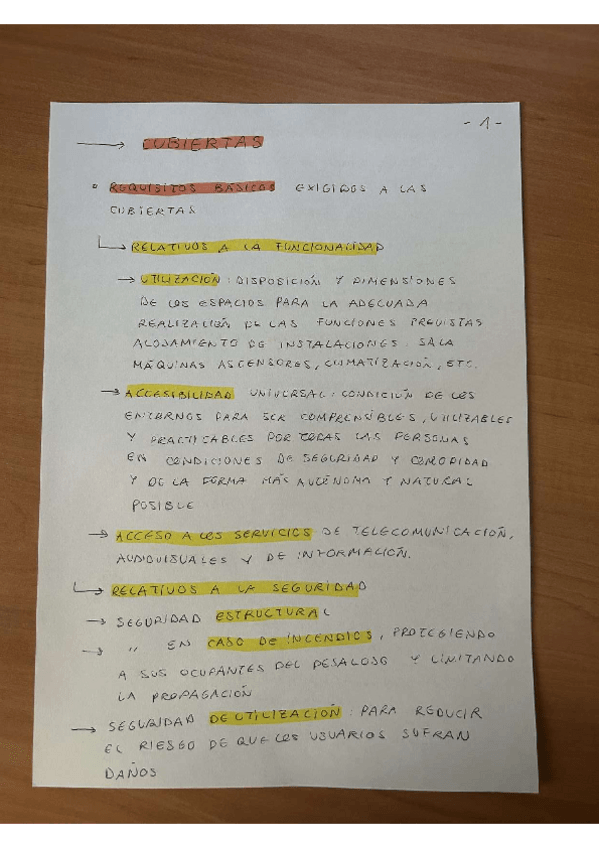 - 1 -
→ CUBIERTAS
• REQUISITOS BÁSICOS EXIGIDOS A LAS
CUBIERTAS
↳ RELATIVOS A LA FUNCIONALIDAD
→ UTILIZACIÓN : DISPOSICIÓN Y DIMENSIONES
DE LOS ESPACIOS PARA LA ADECUADA
REALIZACIÓN DE LAS FUNCIONES PREVISTAS
ALOJAMIENTO DE INSTALACIONES : SALA
MÁQUINAS ASCENSORES, CLIMATIZACIÓN, ETC.
→ ACCESIBILIDAD UNIVERSAL : CONDICIÓN DE LOS
ENTORNOS PARA SER COMPRENSIBLES, UTILIZABLES
Y PRACTICABLES POR TODAS LAS PERSONAS
EN CONDICIONES DE SEGURIDAD Y COMODIDAD
Y DE LA FORMA MÁS AUTÓNOMA Y NATURAL
POSIBLE
→ ACCESO A LOS SERVICIOS DE TELECOMUNICACIÓN,
AUDIOVISUALES Y DE INFORMACIÓN.
↳ RELATIVOS A LA SEGURIDAD
→ SEGURIDAD ESTRUCTURAL
→ " EN CASO DE INCENDIOS, PROTEGIENDO
A SUS OCUPANTES DEL DESALOJO Y LIMITANDO
LA PROPAGACIÓN
→ SEGURIDAD DE UTILIZACIÓN : PARA REDUCIR
EL RIESGO DE QUE LOS USUARIOS SUFRAN
DAÑOS